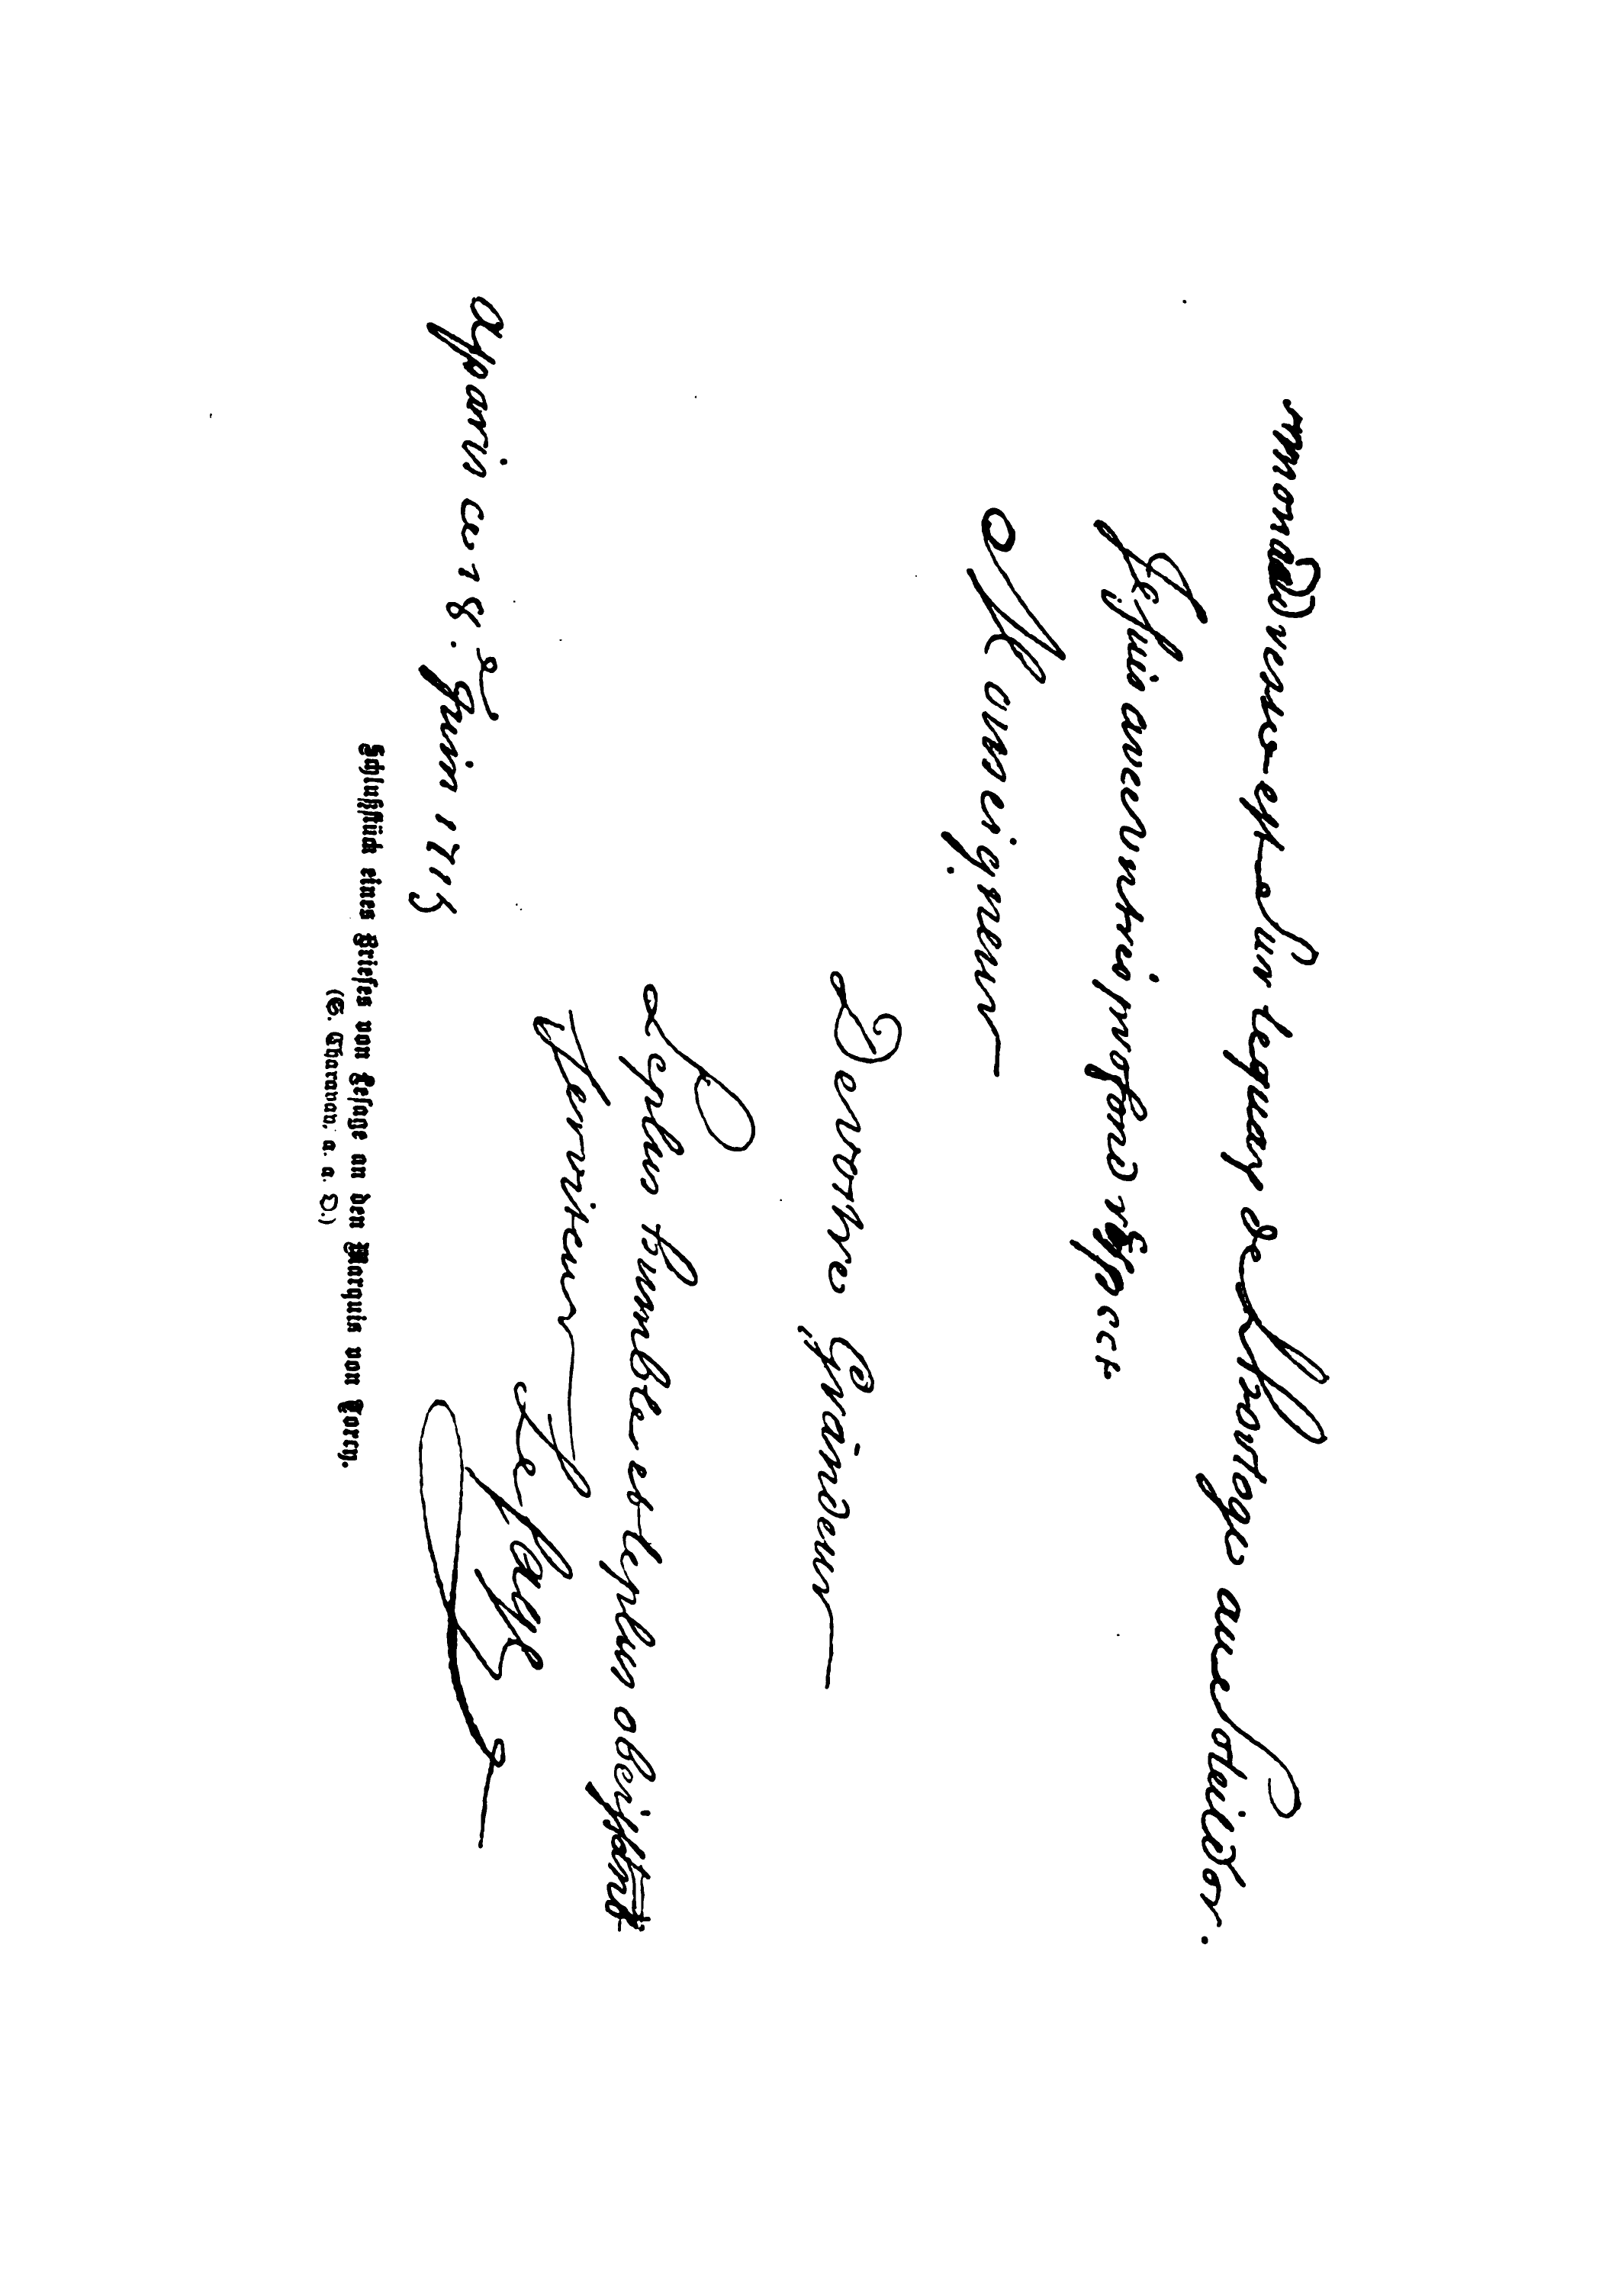 mon adresse est sur le quay de l'horloge au soleil d'or.
Je suis avec un tres profond respect
Monseigneur
De vostre Grandeur
Le plus humble et le plus obeissant
Serviteur Lesage
a paris ce 18.e Juin 1715
Schlußstück eines Briefes von Lesage an den Marquis von Torcy.
(E. Charavay, a. a. O.)